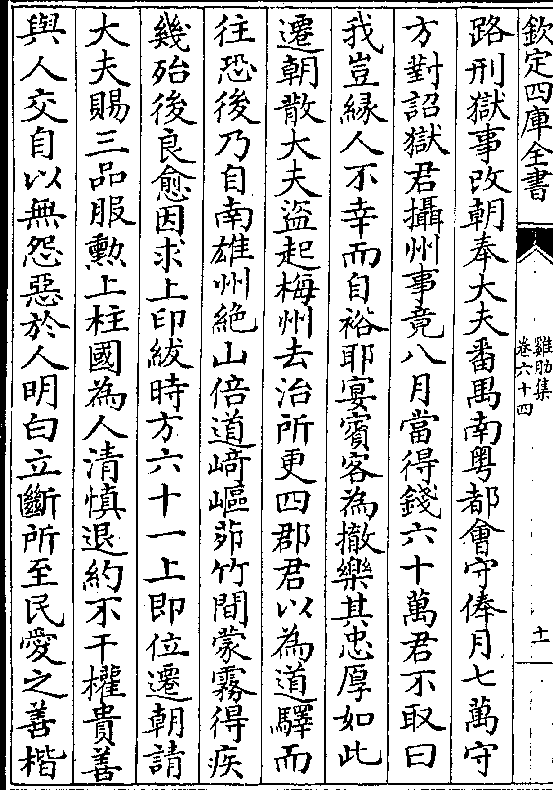 欽定四庫全書
雞肋集
卷六十四
十一
路刑獄事改朝奉大夫番禺南粤都會守俸月七萬守
方對詔獄君攝州事竟八月當得錢六十萬君不取曰
我豈縁人不幸而自裕耶宴賓客為撤樂其忠厚如此
遷朝散大夫盜起梅州去治所更四郡君以為道驛而
往恐後乃自南雄州絶山倍道﨑嶇茆竹間蒙霧得疾
幾殆後良愈因求上印紱時方六十一上即位遷朝請
大夫賜三品服勲上柱國為人清慎退約不干權貴善
與人交自以無怨惡於人明白立斷所至民愛之善楷